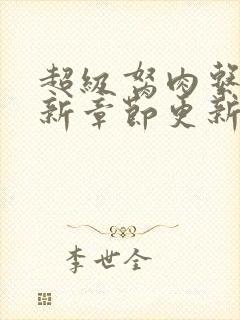 超级驽肉系
新章节更新
李世全